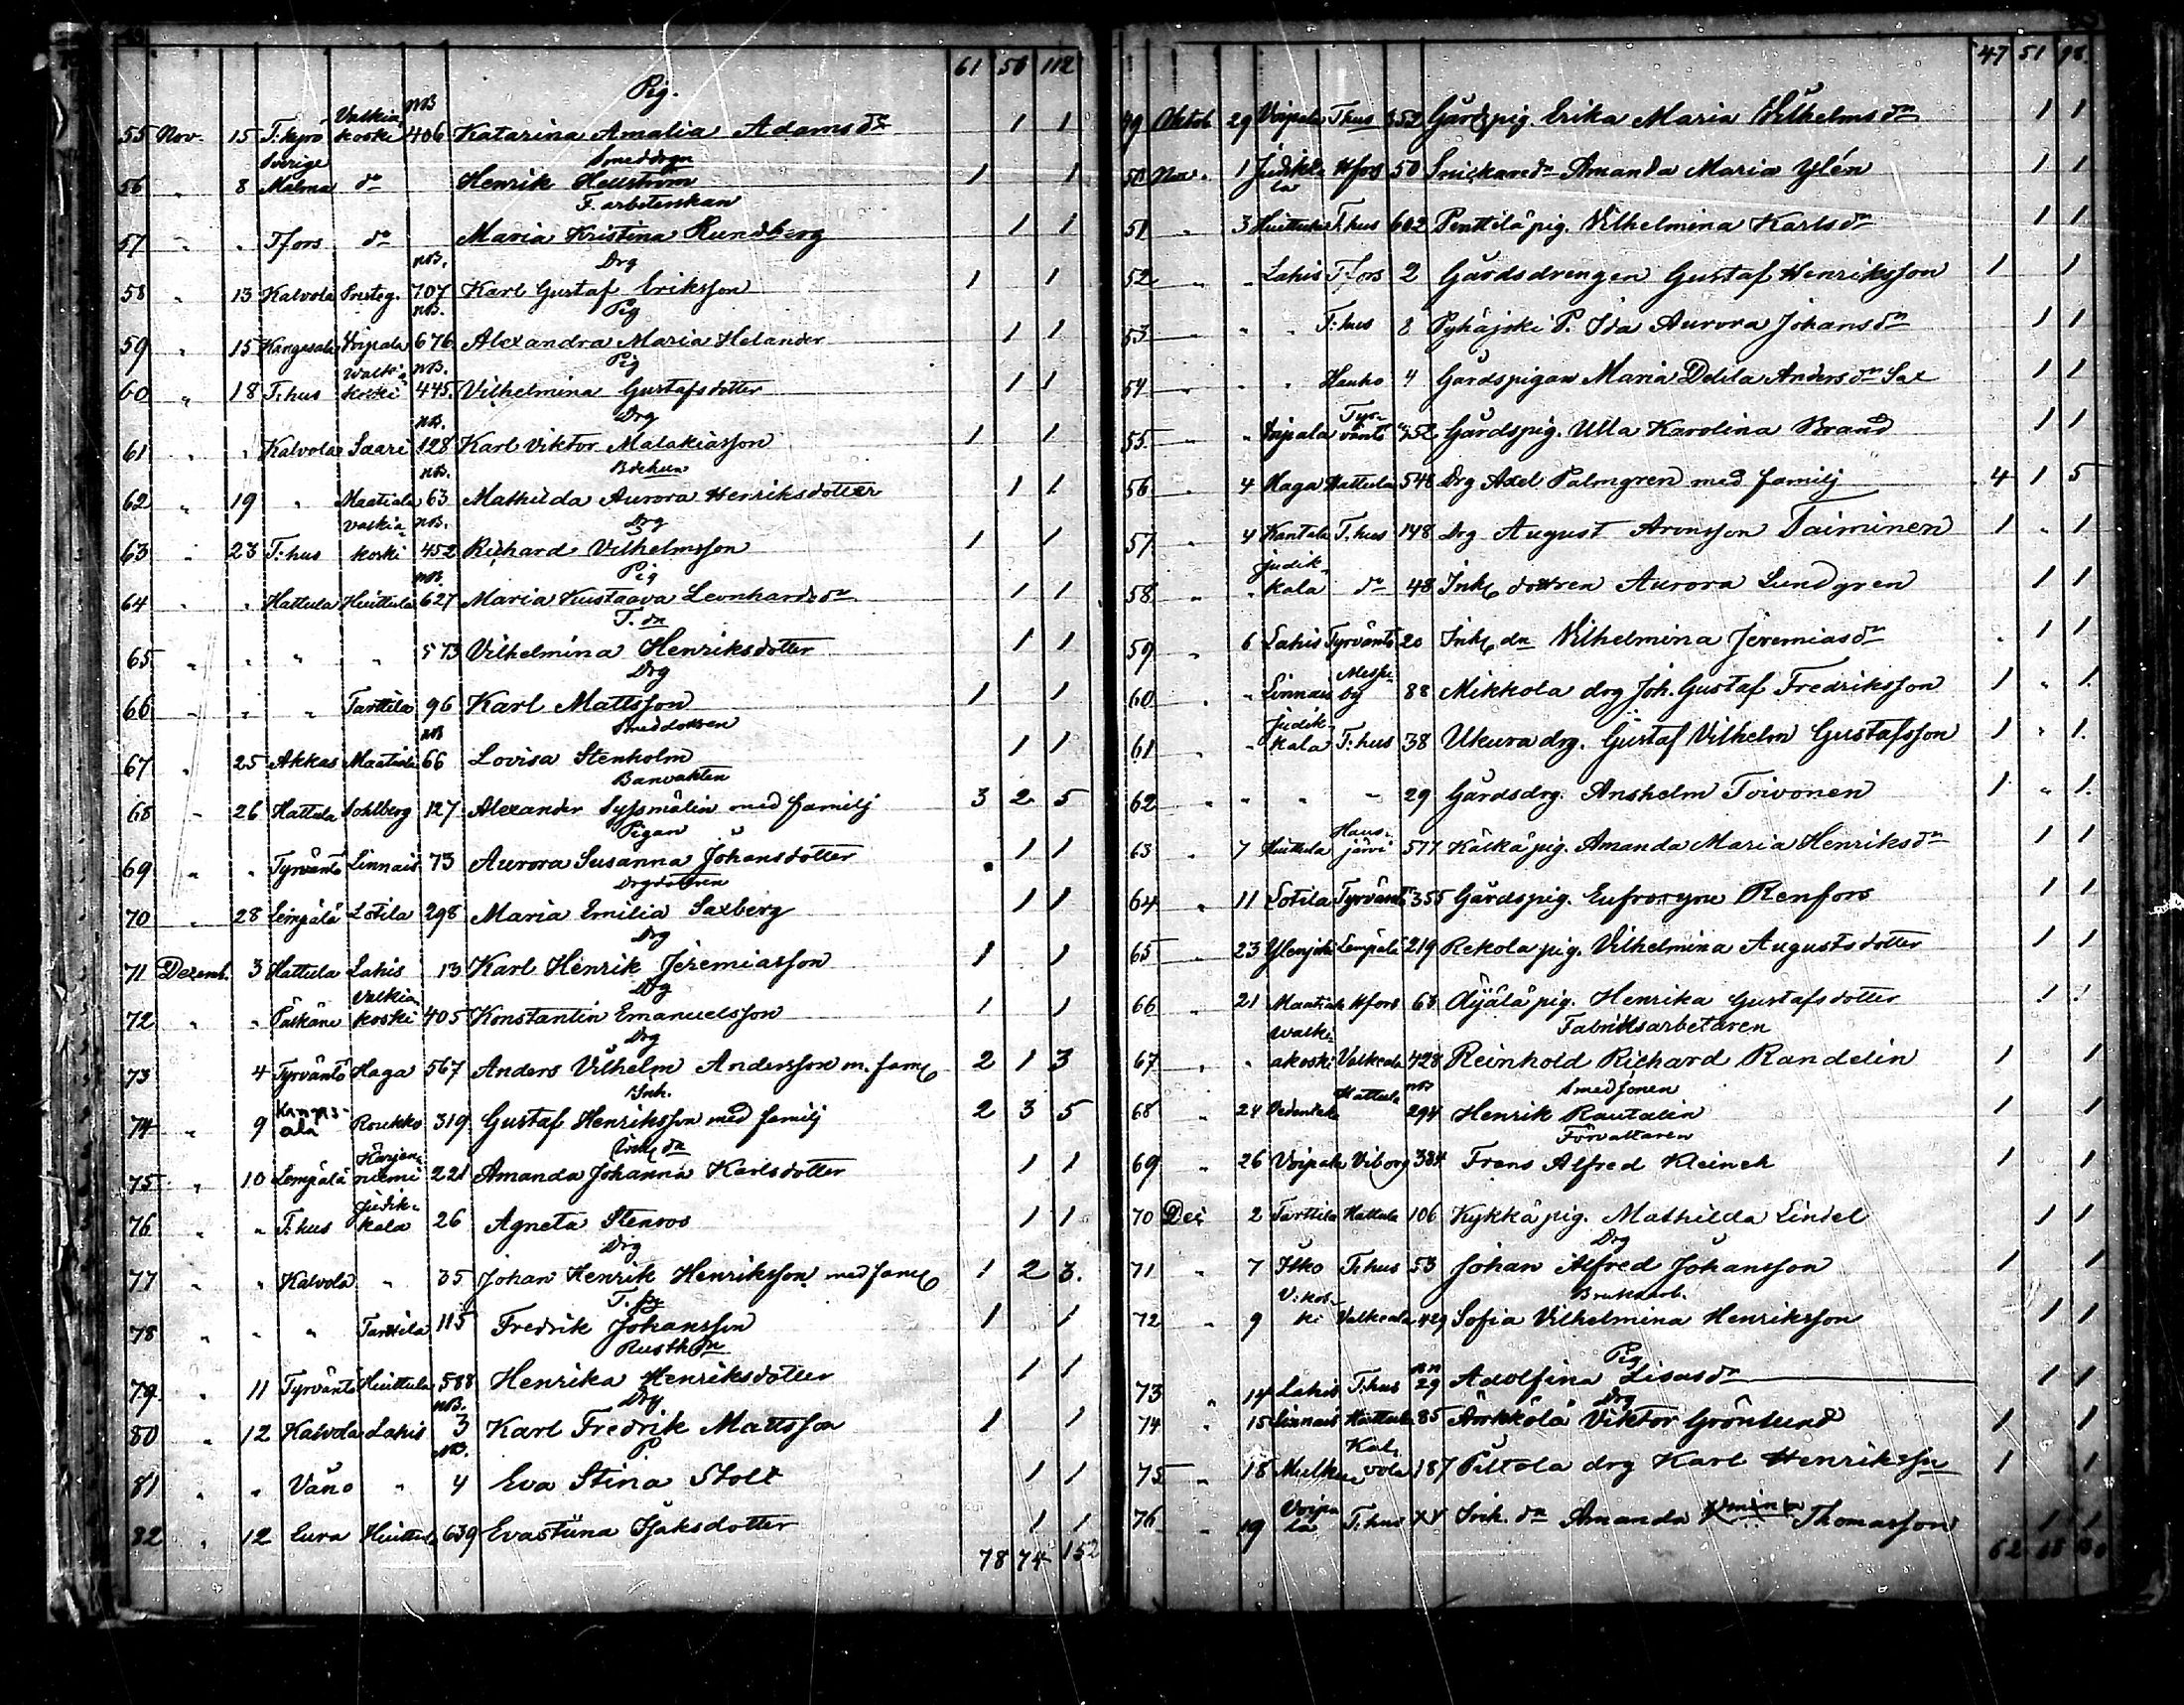 61 50 112
Pig.
55 Nov. 15 T:kyrö Valkiakoski NB 406 Katarina Amalia Adamsdr 1 1
Smeddrgn
56 " 8 Sverige Malma do Henrik Hellström 1 1
F. arbeterskan
57 " " Tfors do Maria Kristina Rundberg 1 1
Drg
58 " 13 Kalvola Presteg. NB. 707 Karl Gustaf Eriksson 1 1
Pig
59 " 15 Kangasala Voipala NB. 676 Alexandra Maria Helander 1 1
Pig
60 " 18 T:hus Walkiakoski NB. 445 Vilhelmina Gustafsdotter 1 1
Drg
61 " " Kalvola Saari NB. 128 Karl Viktor Malakiasson 1 1
62 " 19 " Maatiala NB. 63 Mathilda Aurora Henriksdotter 1 1
Drg
63 " 23 T:hus Valkiakoski NB. 452 Richard Vilhelmsson 1 1
Pig
64 " " Hattula Huittula NB. 627 Maria Kustaava Leonhardsdr 1 1
T. dr
65 " " " " 573 Vilhelmina Henriksdotter 1 1
Drg
66 " " " Tarttila 96 Karl Mattsson 1 1
Smeddottren
67 " 25 Akkas Maatiala NB 66 Lovisa Stenholm 1 1
Banvakten
68 " 26 Hattula Sohlberg 127 Alexander Syssmälin med familj 3 2 5
Pigan
69 " " Tyrväntö Linnais 73 Aurora Susanna Johansdotter 1 1
Drgdottren
70 " 28 Lempälä Lotila 298 Maria Emilia Saxberg 1 1
Drg
71 Dezemb. 3 Hattula Lahis 13 Karl Henrik Jeremiasson 1 1
Drg
72 " " Pälkäne Valkiakoski 405 Konstantin Emanuelsson 1 1
Drg
73 4 Tyrväntö Haga 567 Anders Vilhelm Andersson m. fam 2 1 3
Inh.
74 " 9 Kangasala Roukko 319 Gustaf Henriksson med familj 2 3 5
Inh dr
75 " 10 Lempälä Harjenniemi 221 Amanda Johanna Karlsdotter 1 1
76 " " T:hus Judikkala 26 Agneta Stenroos 1 1
Drg
77 " " Kalvola " 35 Johan Henrik Henriksson med fam 1 2 3.
78 " " " Tarttila 115 Fredrik Johansson 1 1
Rusthdr
79 " 11 Tyrväntö Huittula 588 Henrika Henriksdotter 1 1
Drg
80 " 12 Kalvola Lahis NB. 3 Karl Fredrik Mattsson 1 1
P
81 " " Vånå " NB. 4 Eva Stina Stolt 1 1
82 " 12 Eura Huittula 639 Evastiina Isaksdotter 1 1
78 74 152
47 51 98.
49 Oktob 29 Voipala T:hus 352 Gårdspig. Erika Maria Vilhelmsdr 1 1
50 Nov. 1 Judikkala Hfors 50 Snickaredr Amanda Maria Ylén 1 1
51 " 3 Huittula T:hus 602 Penttilä pig. Vilhelmina Karlsdr 1 1
52 " " Lahis T:fors 2 Gårdsdrengen Gustaf Henriksson 1 1
53 " " T:hus 8 Pyhäjoki P. Ida Aurora Johansdr 1 1
54 " " Hauho 4 Gårdspigan Maria Delila Andersdr Sax 1 1
55 " " Voipala Tyrväntö 352 Gårdspig. Ulla Karolina Brand 1 1
56 " 4 Haga Hattula 548 Drg Axel Palmgren med familj 4 1 5
57 " 4 Kantala T:hus 148 Drg August Aronsson Taiminen 1 " 1
58 " " Judikkala do 48 Inh dottren Aurora Lundgren 1 1
59 " 6 Lahis Tyrväntö 20 Inh dr Vilhelmina Jeremiasdr 1 1
60 " " Linnais by 88 Mikkola drg Joh. Gustaf Fredriksson 1 " 1.
61 " Judikkala T:hus 38 Ukura drg. Gustaf Vilhelm Gustafsson 1 " 1.
62 " " " " 29 Gårdsdrg. Anshelm Toivonen 1 " 1.
63 " 7 Huittula Hausjärvi 577 Kärkä pig. Amanda Maria Henriksdr 1 1
64 " 11 Lotila Tyrväntö 355 Gårdspig. Eufrosyne Renfors 1 1
65 " 23 Lempälä 219 Rekola pig. Vilhelmina Augustsdotter 1 1
66 " 21 Maatiala Hfors 63 Äijälä pig. Henrika Gustafsdotter 1 1
Fabriksarbetaren
67 " " Walkiakoski Valkeala 428 Reinhold Richard Randelin 1 1
Smedsonen
68 " 24 Hattula NB 294 Henrik Rautalin 1 1
Förvaltaren
69 " 26 Voipala Viborg 384 Frans Alfred Kleineh 1 1
70 Dec 2 Tarttila Hattula 106 Kykkä pig. Mathilda Lindel 1 1
Drg
71 " 7 Itko T:hus 53 Johan Alfred Johansson 1 1
Bruksarb.
72 " 9 V:koski Valkeala 429 Sofia Vilhelmina Henriksson 1 1
Pig
73 " 14 Lahis T:hus 29 Adolfina Lisasdr 1 1
Drg
74 " 15 Linnais Hattula 85 Ärkkölä Viktor Grönlund 1 1
75 " 18 Kalvola 187 Piltola drg Karl Henriksson 1 1
76 " 19 Voipala T:hus Inh. dr Amanda Thomasson 1 1